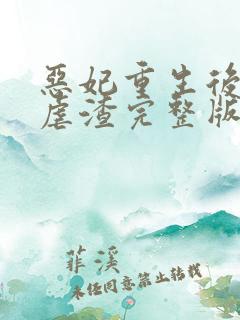 惡妃重生後
虐渣完整版
菲溪
未经同意禁止转载